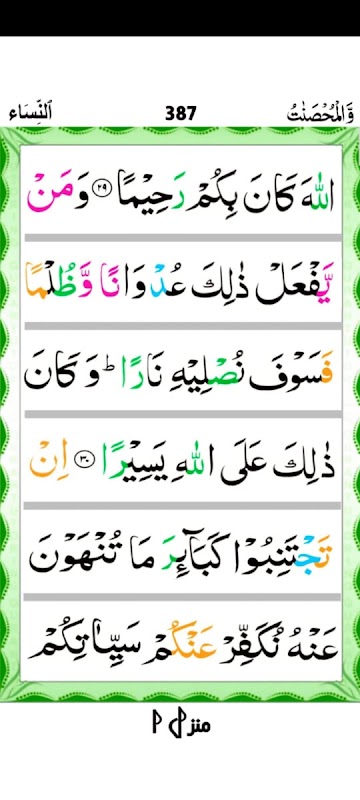 وَّالْمُحْصَنٰتُ 387 اَلنِّسَاء
اللّٰهَ كَانَ بِكُمْ رَحِيْمًا ۝۲۹ وَمَنْ
يَّفْعَلْ ذٰلِكَ عُدْوَانًا وَّظُلْمًا
فَسَوْفَ نُصْلِيْهِ نَارًا ؕ وَكَانَ
ذٰلِكَ عَلَى اللّٰهِ يَسِيْرًا ۝۳۰ اِنْ
تَجْتَنِبُوْا كَبَآئِرَ مَا تُنْهَوْنَ
عَنْهُ نُكَفِّرْ عَنْكُمْ سَيِّاٰتِكُمْ
منزل ۱